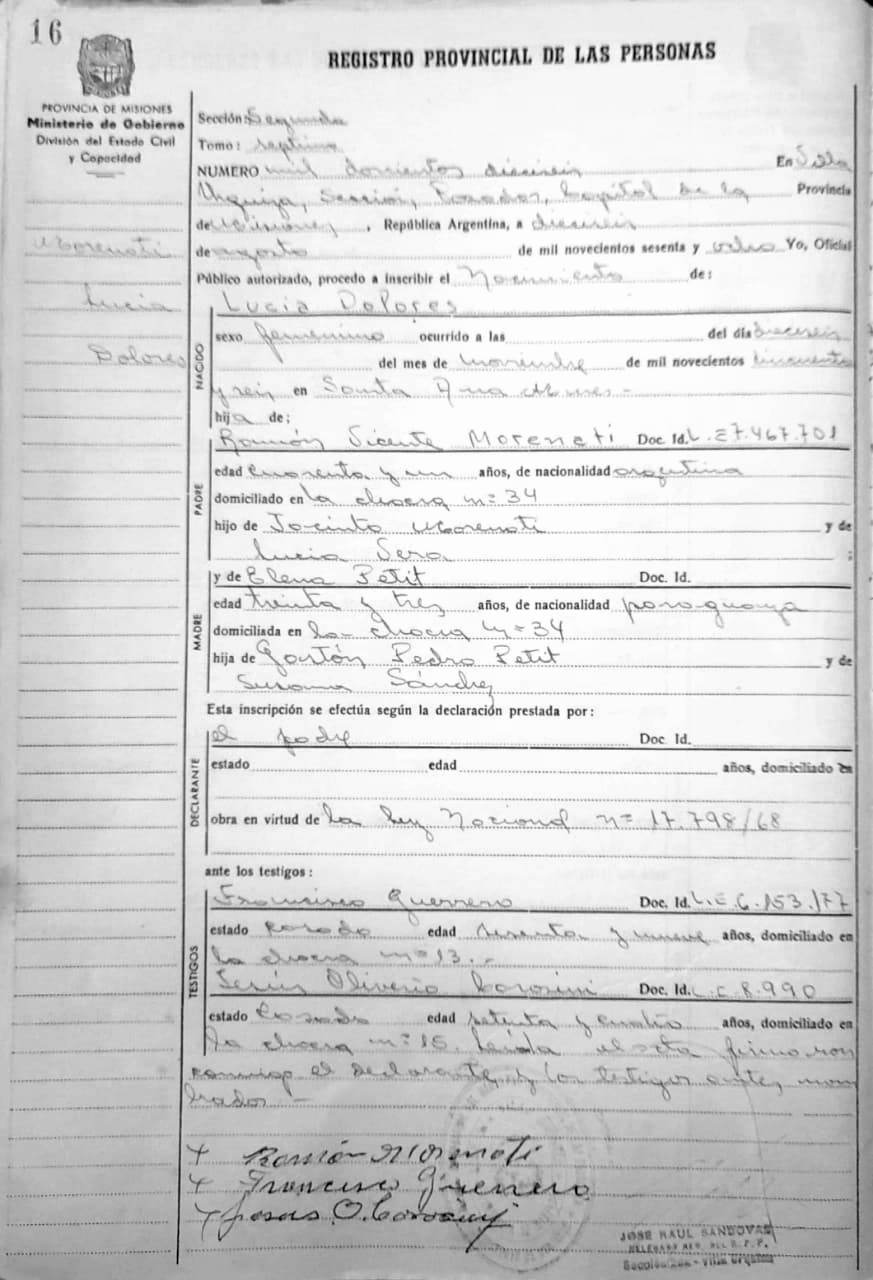 16
REGISTRO PROVINCIAL DE LAS PERSONAS
PROVINCIA DE MISIONES
Ministerio de Gobierno
División del Estado Civil
y Capacidad
Morenati
Lucia
Dolores
Sección: Segunda
Tomo: septimo
NUMERO mil doscientos dieciseis En Villa
Urquiza, Sección, Posadas, Capital de la Provincia
de Misiones, República Argentina, a dieciseis
de agosto de mil novecientos sesenta y ocho Yo, Oficial
Público autorizado, procedo a inscribir el Nacimiento de:
NACIDO
Lucia Dolores
sexo femenino ocurrido a las del día dieciseis
del mes de noviembre de mil novecientos cincuenta
y seis en Santa Ana Mnes -
hija de;
PADRE
Ramón Vicente Morenati Doc. Id. L.E 7.467.701
edad cuarenta y un años, de nacionalidad argentina
domiciliado en la chacra nº 34
hijo de Jacinto Morenati y de
Lucia Vera ;
MADRE
y de Elena Petit Doc. Id.
edad treinta y tres años, de nacionalidad paraguaya
domiciliada en la chacra nº 34
hija de Gastón Pedro Petit y de
Susana Sánchez
Esta inscripción se efectúa según la declaración prestada por:
DECLARANTE
el padre Doc. Id.
estado edad años, domiciliado en
obra en virtud de la ley Nacional nº 17.798/68
ante los testigos:
TESTIGOS
Francisco Guerrero Doc. Id. L.E 6.153.177
estado casado edad sesenta y nueve años, domiciliado en
la chacra nº 13.-
Jesús Oliverio Doc. Id. L.C 8.990
estado casado edad setenta y cuatro años, domiciliado en
la chacra nº 15. Leida el acta firmaron
conmigo el declarante y los testigos antes nom
brados -
+ Ramón Morenati
+ Francisco Guerrero
+ Jesus O.
JOSE RAUL SANDOVAL